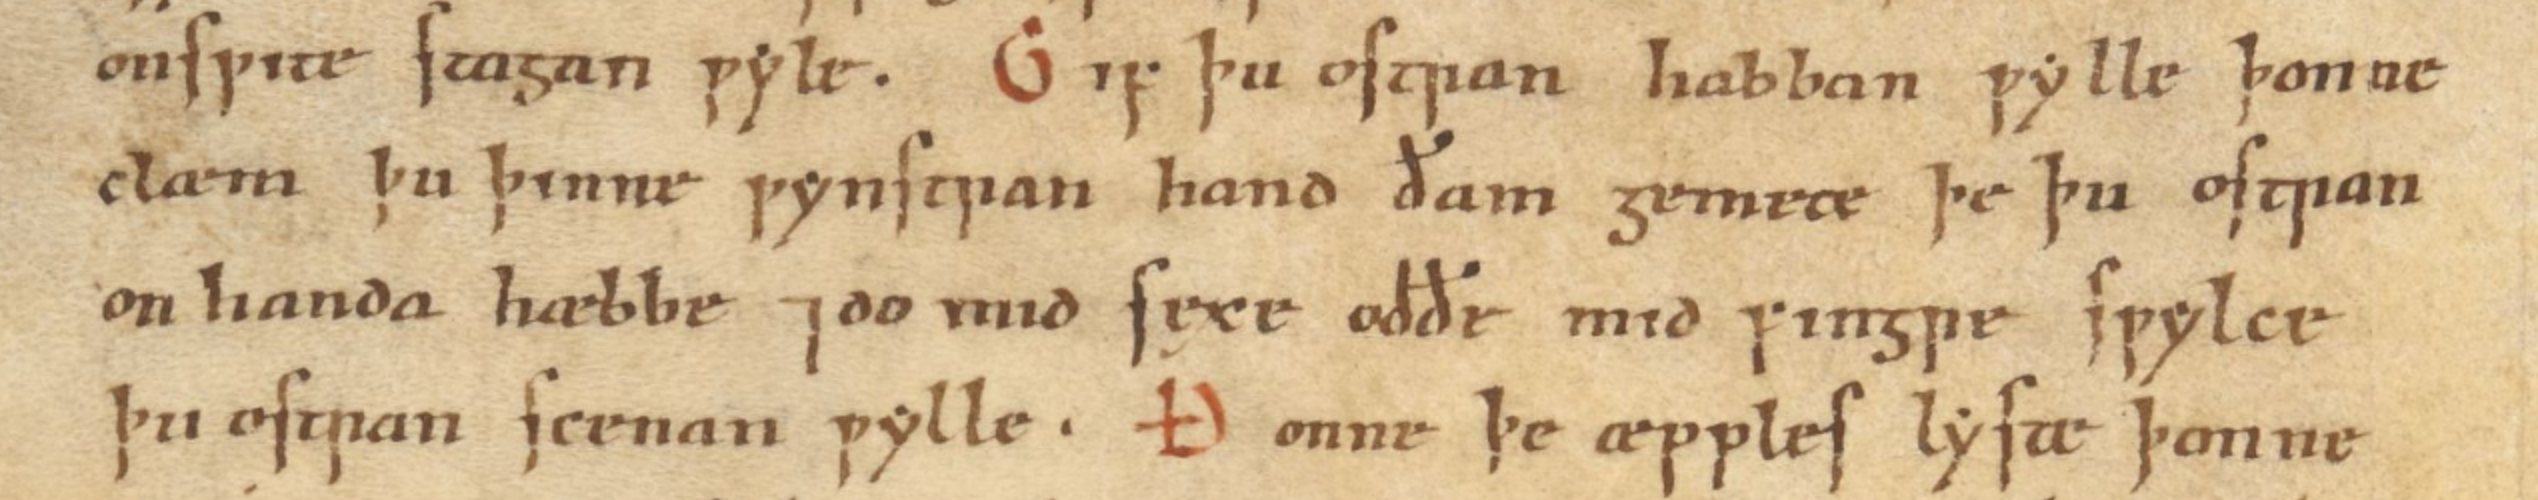 onspite stagan ƿẏle. Gif þu ostran habban ƿẏlle þonne
clæm þu þinne ƿẏnstran hand ðam gemete þe þu ostran
on handa hæbbe ⁊ do mid sexe oððe mid fingre sƿẏlce
þu ostran scenan ƿẏlle. Ðonne þe æpples lẏste þonne